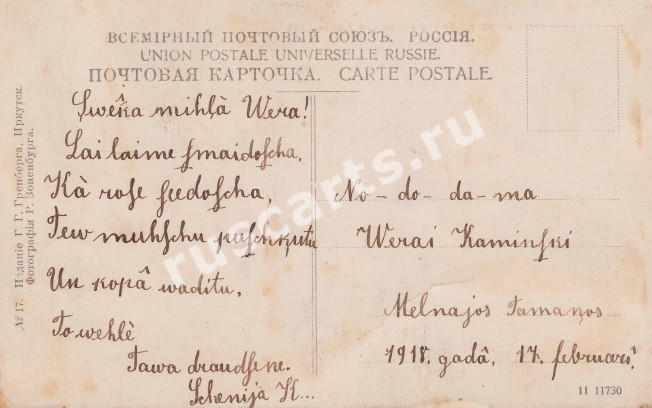 ВСЕМІРНЫЙ ПОЧТОВЫЙ СОЮЗЪ. РОССІЯ.
UNION POSTALE UNIVERSELLE RUSSIE.
ПОЧТОВАЯ КАРТОЧКА. CARTE POSTALE.
Sweika mihļà Wera!
Lai laime ſmaidoſcha,
Kà roſe ſeedoſcha,
Tew muhſchu puſchķutu
Un kopâ waditu,
To wehlè
Tawa draudſene.
Schenija K...
No-do-da-ma
Werai Kaminſki
Melnajos Tamaņos
1918. gadâ, 17. februarî.
№ 17. Изданіе Г. Г. Гренберга, Иркутск.
Фотографія Р. Зоненбурга.
11 11730
ruscarts.ru